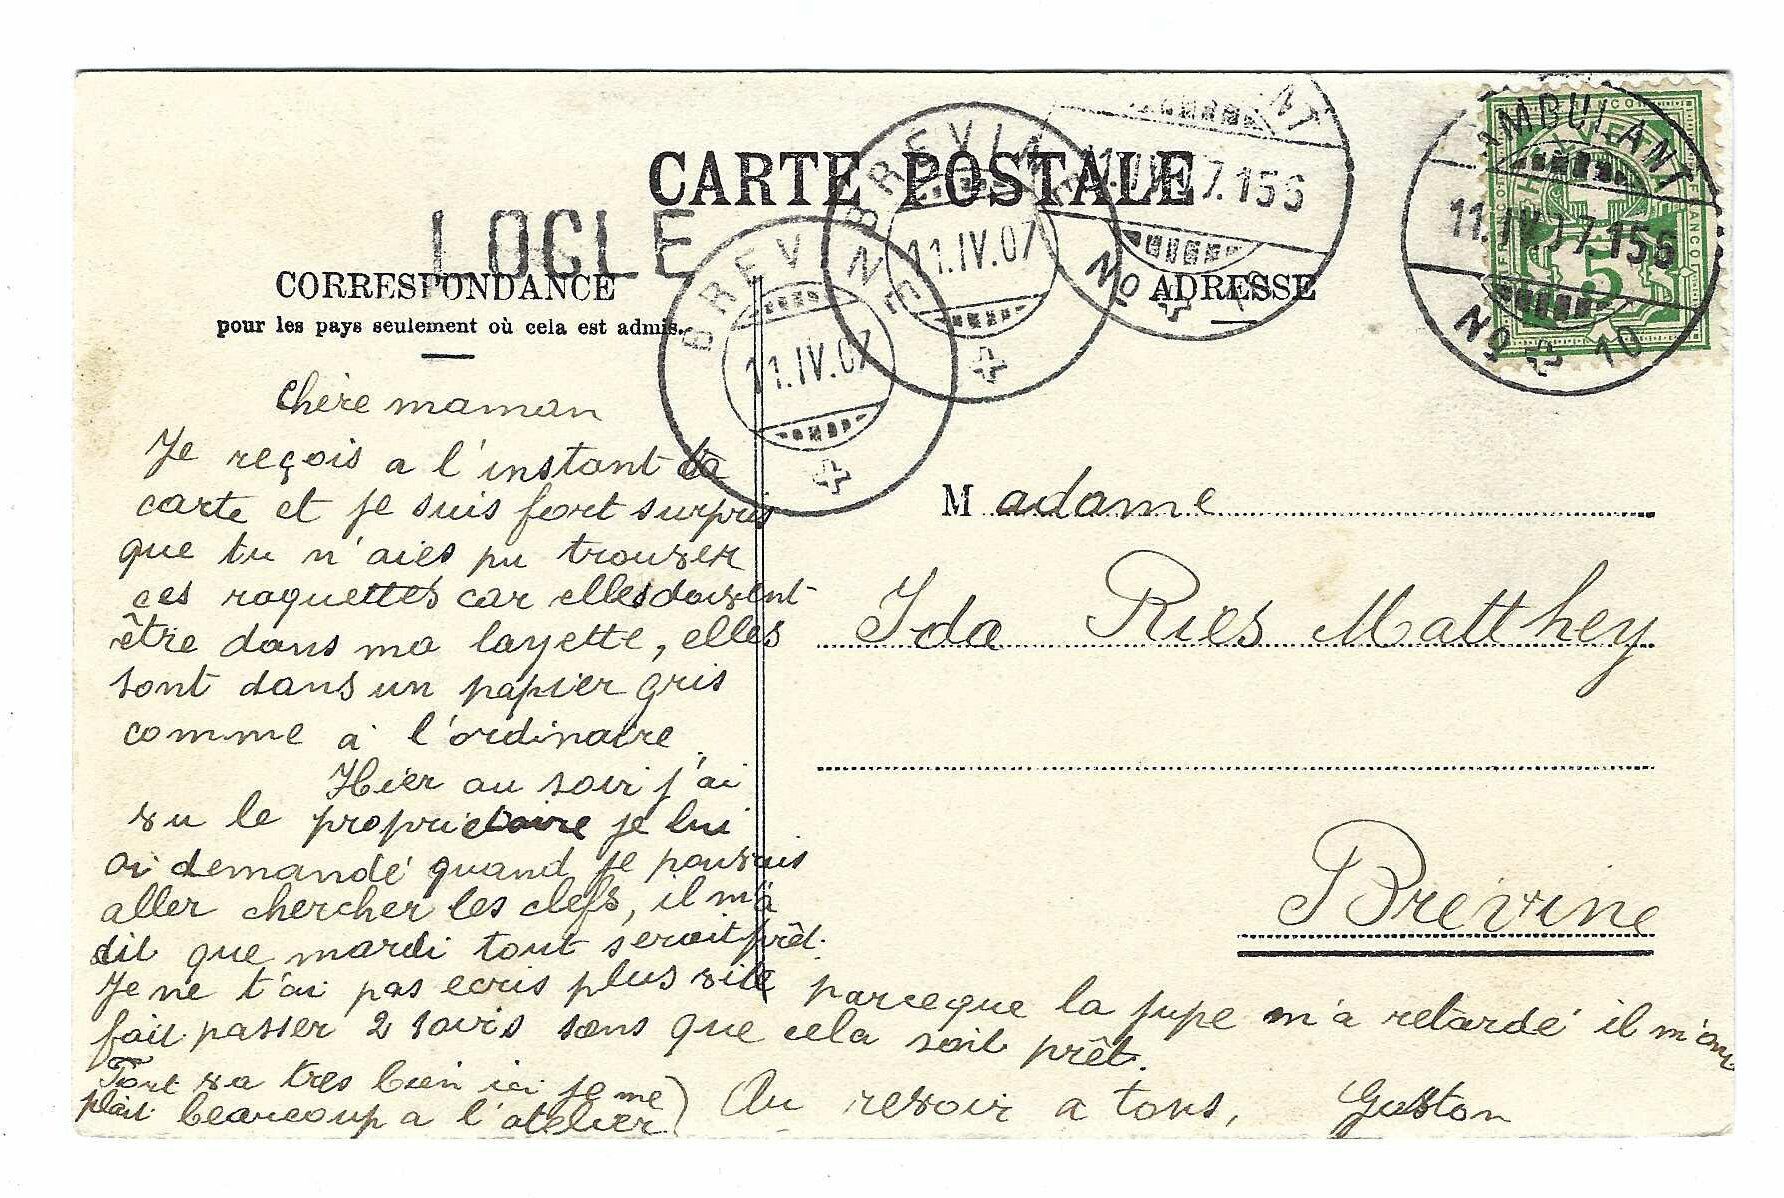 CARTE POSTALE
LOCLE
CORRESPONDANCE
pour les pays seulement où cela est admis.
ADRESSE
BREVINE
11.IV.07
BREVINE
11.IV.07
11.IV.07.156
No
AMBULANT
11.IV.07.156
No 10
5
Chère maman
Je reçois a l'instant ta
carte et je suis fort surpris
que tu n'aies pu trouver
ces raquettes car elles doivent
être dans ma layette, elles
sont dans un papier gris
comme à l'ordinaire.
Hier au soir j'ai
vu le proprietaire je lui
ai demandé quand je pouvais
aller chercher les clefs, il m'a
dit que mardi tout serait prêt.
Je ne t'ai pas ecris plus vite parceque la jupe m'a retardé il m'ont
fait passer 2 soirs sans que cela soit prêt.
Tout va tres bien ici je me
plait beaucoup a l'atelier)
Au revoir a tous, Gaston
Madame
Ida Ries Matthey
Brévine